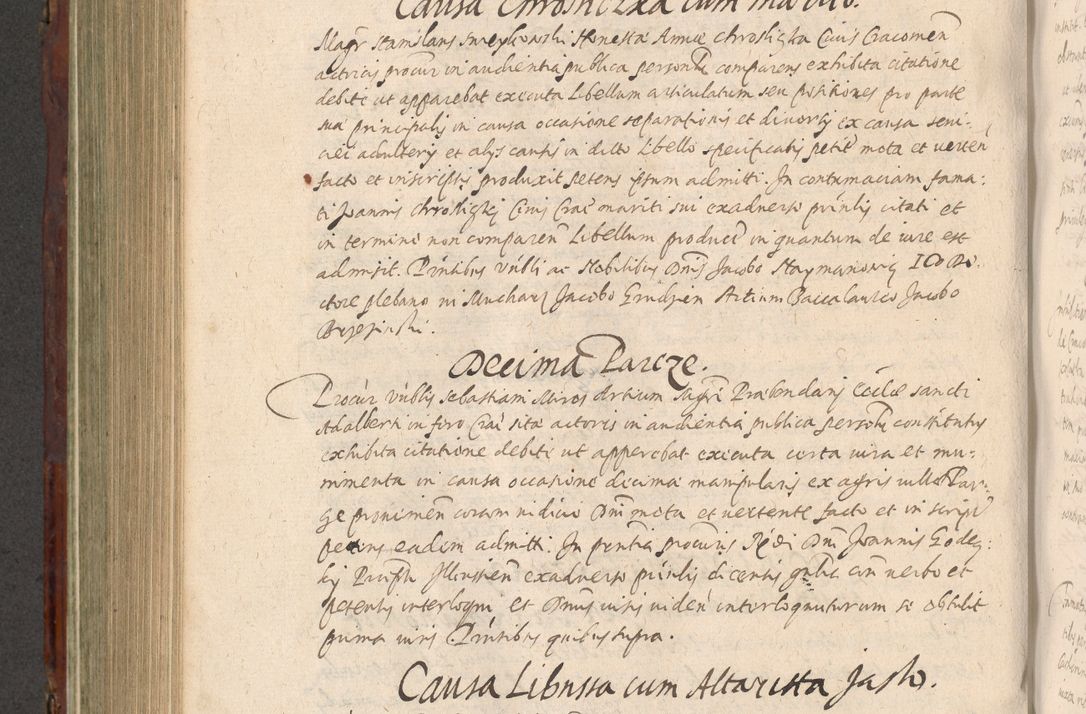 Causa Chrosliczka cum marito.
Magr Stanislaus Sweykowski Honesta Annae Chrosliczka Civis Cracomen
actricis procur in audientia publica personlr comparens exhibita citatione
debite ut apparebat executa Libellum articulatum seu positiones pro parte
sua principalis in causa occasione separationis et divortij ex causa sevi-
ciei adulterij et alijs causis in dicto Libello specificatis petit mota et verten
facto et inscriptis produxit petens ipsum admitti. In contumaciam fama:
ti Joannis Chrosliczkj Civis Crac mariti sui ex adverso prinlis citati et
in termino non comparen Libellum produci in quantum de iure est
admisit. Prntibus vnbli ac Nobilibus Dnis Jacobo Naymanowicz I C D Do-
ctore plebano in Mucharz Jacobo Grudzien Artium Baccalaureo Jacobo
Brzezinski.
Decima Parcze.
Procur vnblis Sebastiani Miros Artium Magri Praebendarij Ecclae sancti
Adalberti in foro Crac sitae actoris in audientia publica personlr constitutus
exhibita citatione debite ut apperebat executa certa iura et mu-
nimenta in causa occasione decimae manipularis ex agris villae Par-
ge provenien coram iudicio Dni mota et vertente facto et in script
petens eadem admitti. In pentia procuris Rndi Dni Joannis Godec:
kij Praepti Ilkussien ex adverso prinlis dicentis gnlia cum verbo et
petentis interloqui et Dnus visis viden interloquuturum se obtulit
prima iuris Prntibus quibus supra.
Causa Librussa cum Altarista Jaslo.